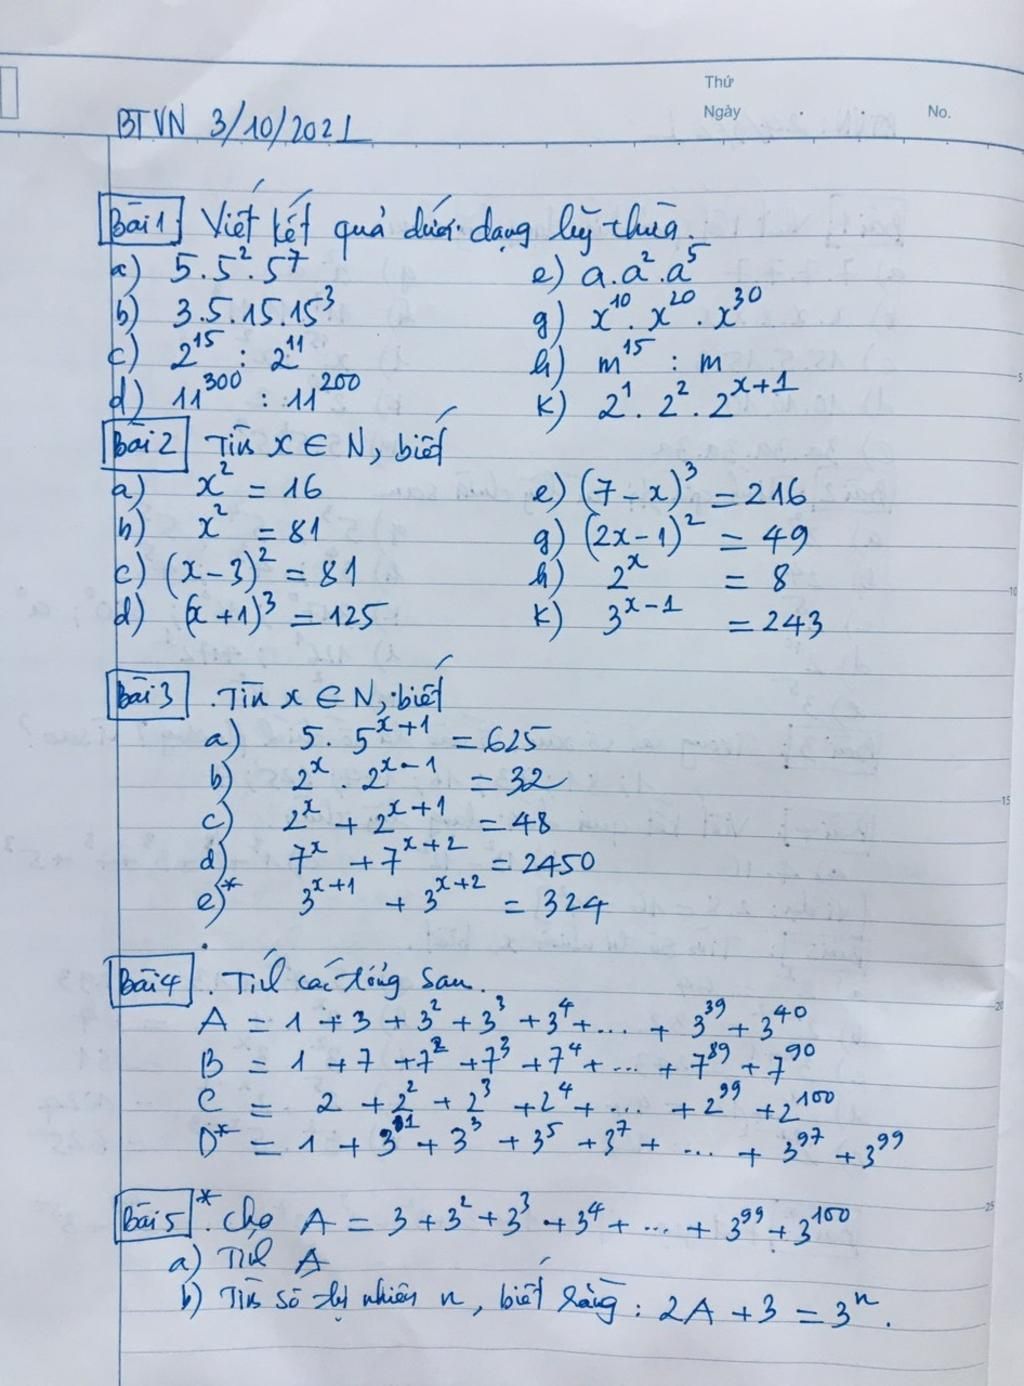 Thứ
Ngày . . No.
BTVN 3/10/2021
Bài 1. Viết kết quả dưới dạng lũy thừa.
a) 5.5².5⁷ e) a.a².a⁵
b) 3.5.15.15³ g) x¹⁰.x²⁰.x³⁰
c) 2¹⁵ : 2¹¹ h) m¹⁵ : m
d) 11³⁰⁰ : 11²⁰⁰ k) 2¹.2².2ˣ⁺¹
Bài 2 Tìm x ∈ N, biết
a) x² = 16 e) (7-x)³ = 216
b) x² = 81 g) (2x-1)² = 49
c) (x-3)² = 81 h) 2ˣ = 8
d) (x+1)³ = 125 k) 3ˣ⁻¹ = 243
Bài 3 . Tìm x ∈ N, biết
a) 5.5ˣ⁺¹ = 625
b) 2ˣ.2ˣ⁻¹ = 32
c) 2ˣ + 2ˣ⁺¹ = 48
d) 7ˣ + 7ˣ⁺² = 2450
e)* 3ˣ⁺¹ + 3ˣ⁺² = 324
Bài 4 . Tính các tổng sau.
A = 1 + 3 + 3² + 3³ + 3⁴ + ... + 3³⁹ + 3⁴⁰
B = 1 + 7 + 7² + 7³ + 7⁴ + ... + 7⁸⁹ + 7⁹⁰
C = 2 + 2² + 2³ + 2⁴ + ... + 2⁹⁹ + 2¹⁰⁰
D* = 1 + 3¹ + 3³ + 3⁵ + 3⁷ + ... + 3⁹⁷ + 3⁹⁹
Bài 5 *. Cho A = 3 + 3² + 3³ + 3⁴ + ... + 3⁹⁹ + 3¹⁰⁰
a) Tính A
b) Tìm số tự nhiên n, biết rằng : 2A + 3 = 3ⁿ.